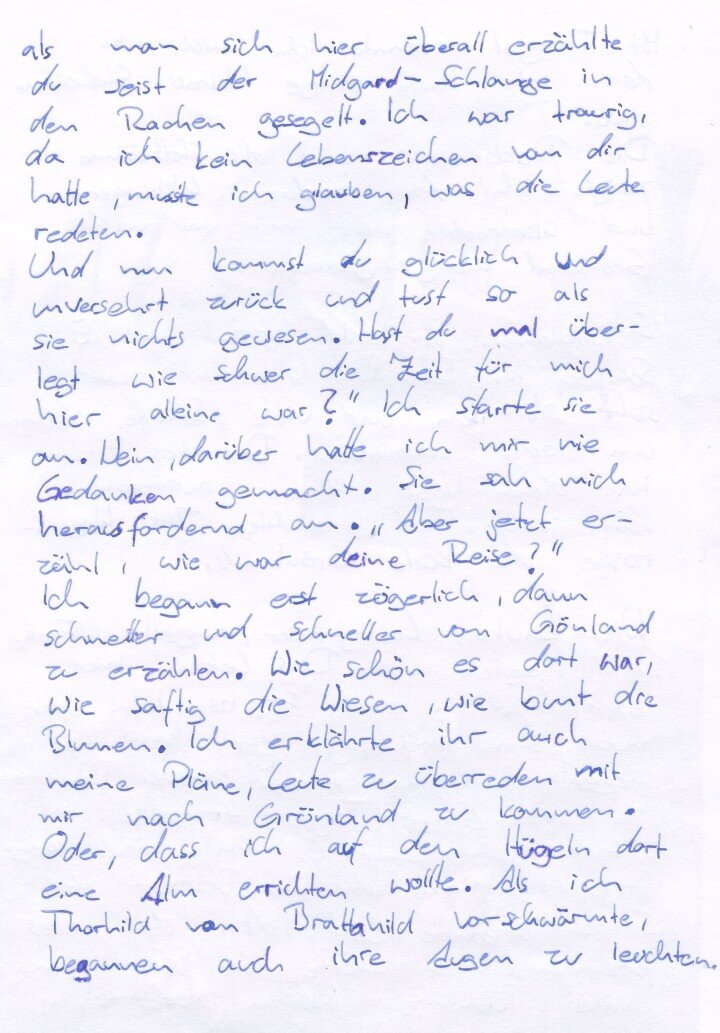 als man sich hier überall erzählte
du seist der Midgard-Schlange in
den Rachen gesegelt. Ich war traurig,
da ich kein Lebenszeichen von dir
hatte, musste ich glauben, was die Leute
redeten.
Und nun kommst du glücklich und
unversehrt zurück und tust so als
sie nichts gewesen. Hast du mal über-
legt wie schwer die Zeit für mich
hier alleine war?" Ich starrte sie
an. Nein, darüber hatte ich mir nie
Gedanken gemacht. Sie sah mich
herausfordernd an. „Aber jetzt er-
zähl, wie war deine Reise?"
Ich begann erst zögerlich, dann
schneller und schneller von Gönland
zu erzählen. Wie schön es dort war,
wie saftig die Wiesen, wie bunt die
Blumen. Ich erklährte ihr auch
meine Pläne, Leute zu überreden mit
mir nach Grönland zu kommen.
Oder, dass ich auf den Hügeln dort
eine Alm errichten wollte. Als ich
Thorhild von Brattahild vorschwärmte,
begannen auch ihre Augen zu leuchten.